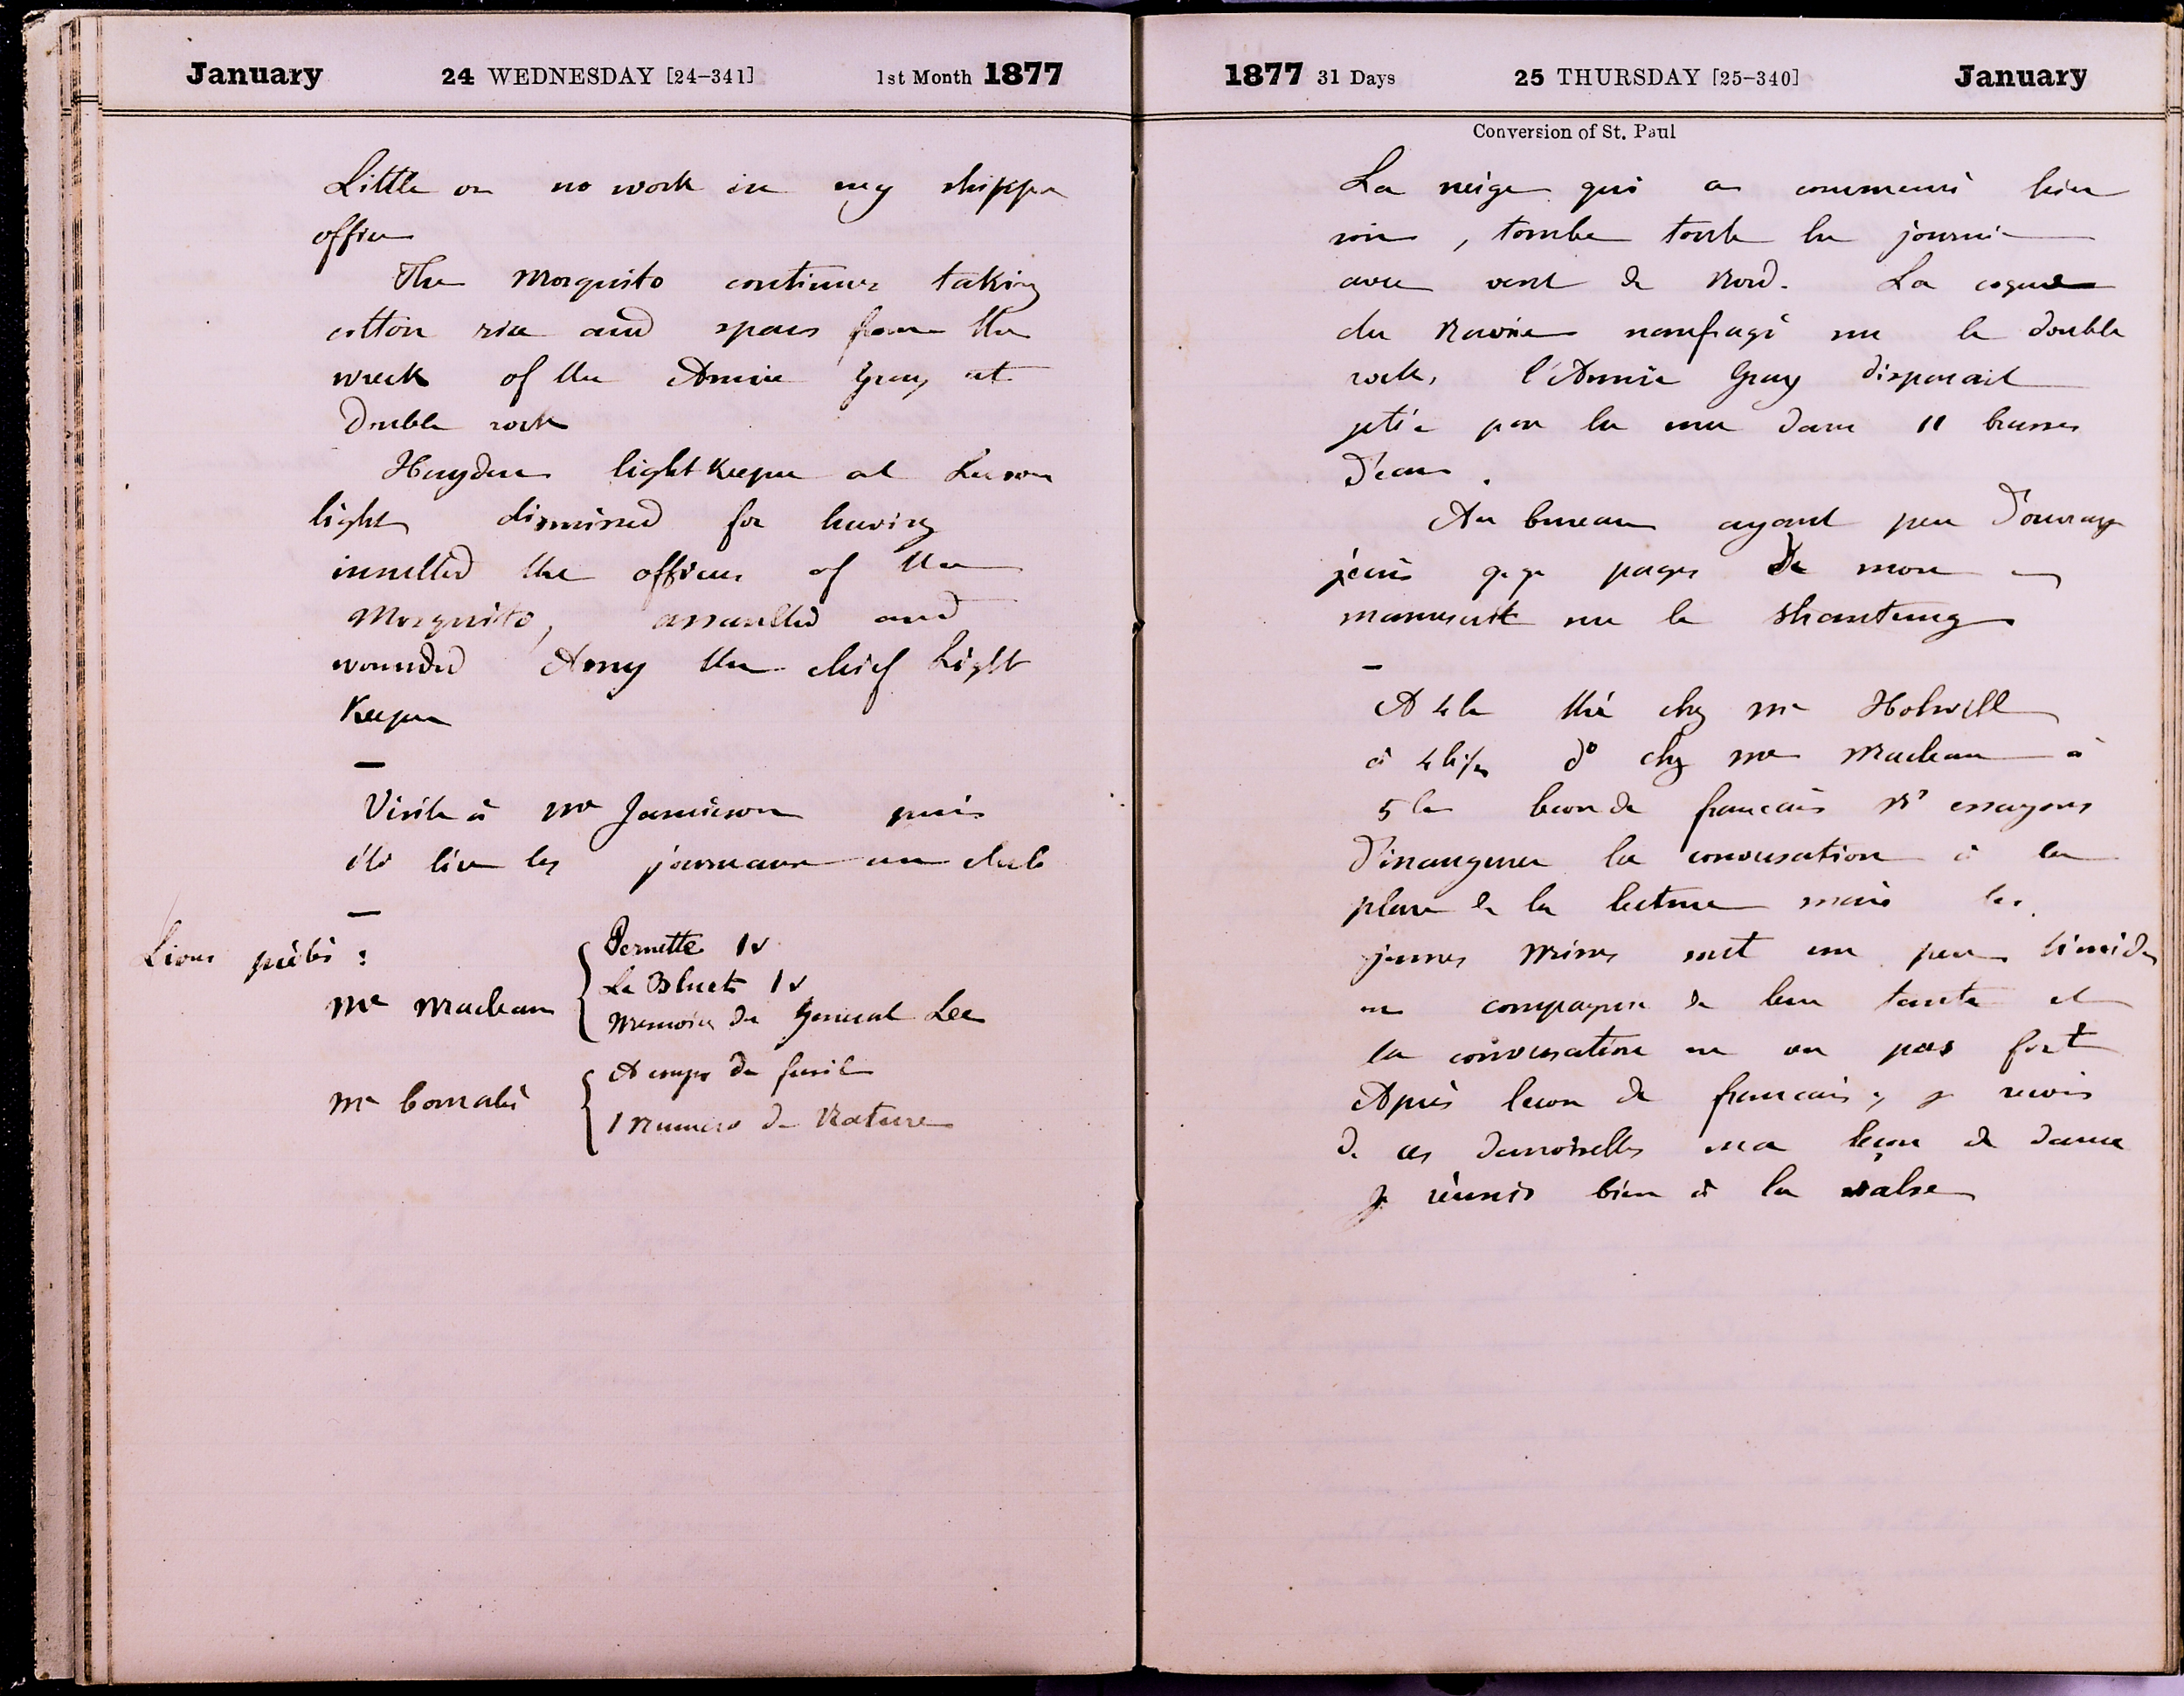 January 24 WEDNESDAY [24–341] 1st Month 1877
Little or no work in my shipper
office
The Mosquito continues taking
cotton rice and spars from the
wreck of the Annie Gray at
Double rock
Hayden light Keeper at
light dismissed for having
insulted the officers of the
Mosquito, assaulted and
wounded the chief Light
Keeper
—
Visite à Mr Jamieson puis
été lire les journaux au club
—
Livres prêtés :
Mr Maclean { Pernette 1 v
Le Bluet 1 v
Memoires du General Lee
Mr { A coups de fusil
1 Numero de Nature
1877 31 Days 25 THURSDAY [25–340] January
Conversion of St. Paul
La neige qui a commencé hier
soir, tombe toute la journée
avec vent de Nord. La coque
du Navire naufragé sur le double
rock, l'Annie Gray disparait
jetée par la mer dans 11 brasses
d'eau.
Au bureau ayant peu d'ouvrage
j'écris qq. pages de mon
manuscrit sur le Shantung
—
A 4 h thé chez Mr Holwill
à 4 h 1/2 do chez Mr Maclean à
5 h lecon de francais Ns essayons
d'inaugurer la conversation à la
place de la lecture mais les
jeunes Misses sont un peu timides
en compagnie de leur tante et
la conversation ne va pas fort
Après lecon de francais, je recois
de ces demoiselles ma leçon de danse
Je réussis bien à la valse